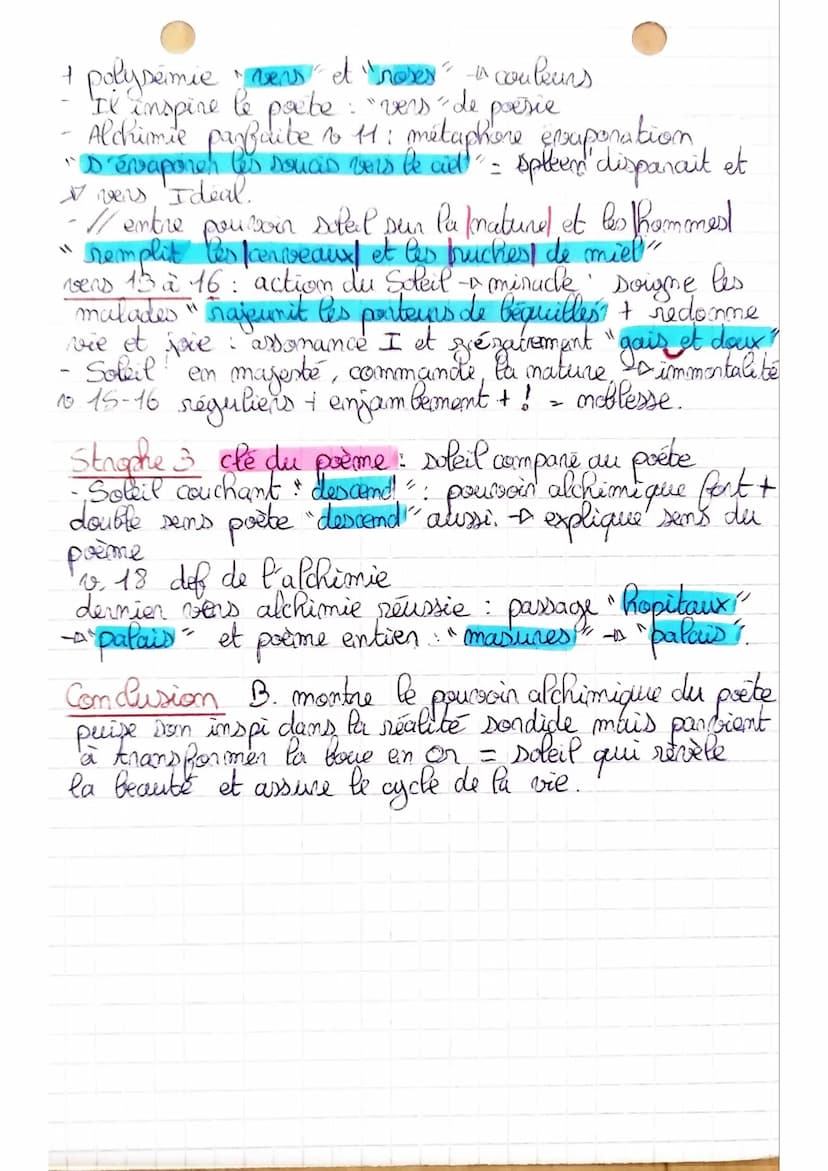 + polysémie "vers" et "roses" -> couleurs
- Il inspire le poète : "vers" de poésie
- Alchimie parfaite v 11 : métaphore évaporation
"s'évaporer les soucis vers le ciel" = spleen disparait et
vers Idéal.
- // entre pouvoir soleil sur la |nature| et les |hommes|
"remplit les |cerveaux| et les |ruches| de miel"
vers 13 à 16 : action du Soleil -> miracle : soigne les
malades "rajeunit les porteurs de béquilles" + redonne
vie et joie : assonance I et "gais et doux"
- Soleil en majesté, commande la nature -> immortalité
v 15-16 réguliers + enjambement + ! = noblesse.
Strophe 3 clé du poème : soleil comparé au poète
- Soleil couchant "descend" : pouvoir alchimique fort +
double sens poète "descend" aussi. -> explique sens du
poème
v. 18 def de l'alchimie
dernier vers alchimie réussie : passage "hopitaux"
-> "palais" et poème entier : "masures" -> "palais".
Conclusion B. montre le pouvoir alchimique du poète
puise son inspi dans la réalité sordide mais parvient
à transformer la boue en or = soleil qui révèle
la beauté et assure le cycle de la vie.